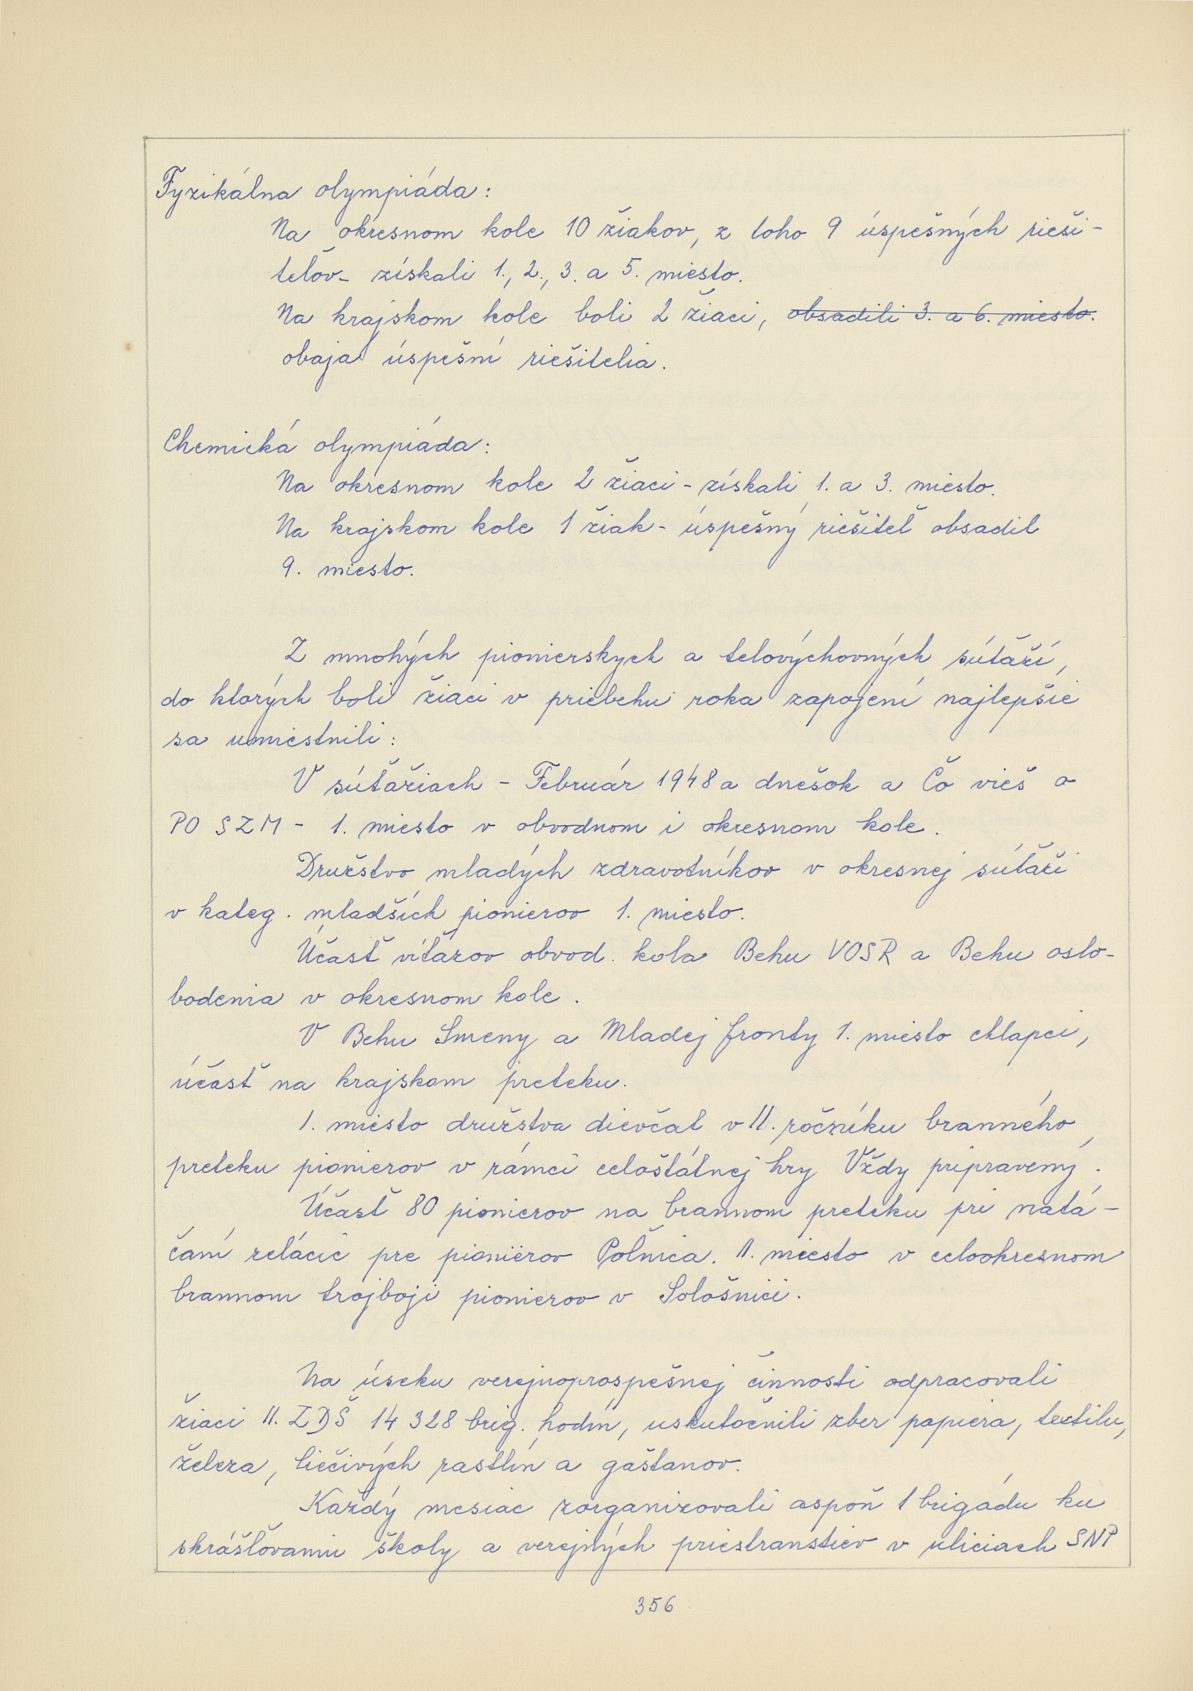 Fyzikálna olympiáda:
Na okresnom kole 10 žiakov, z toho 9 úspešných rieši-
teľov - získali 1., 2., 3. a 5. miesto.
Na krajskom kole boli 2 žiaci, obsadili 3. a 6. miesto.
obaja úspešní riešitelia.
Chemická olympiáda:
Na okresnom kole 2 žiaci - získali 1. a 3. miesto.
Na krajskom kole 1 žiak - úspešný riešiteľ obsadil
9. miesto.
Z mnohých pionierskych a telovýchovných súťaží,
do ktorých boli žiaci v priebehu roka zapojení najlepšie
sa umiestnili:
V súťažiach - Február 1948 a dnešok a Čo vieš o
PO SZM - 1. miesto v obvodnom i okresnom kole.
Družstvo mladých zdravotníkov v okresnej súťaži
v kateg. mladších pionierov 1. miesto.
Účasť víťazov obvod. kola Behu VOSR a Behu oslo-
bodenia v okresnom kole.
V Behu Smeny a Mladej fronty 1. miesto chlapci,
účasť na krajskom preteku.
1. miesto družstva dievčat v II. ročníku branného
preteku pionierov v rámci celoštátnej hry Vždy pripravený.
Účasť 80 pionierov na brannom preteku pri natá-
čaní relácie pre pionierov Poľnica. II. miesto v celookresnom
brannom trojboji pionierov v Sološnici.
Na úseku verejnoprospešnej činnosti odpracovali
žiaci II. ZDŠ 14 328 brig. hodín, uskutočnili zber papiera, textilu,
železa, liečivých rastlín a gaštanov.
Každý mesiac zorganizovali aspoň 1 brigádu ku
skrášľovaniu školy a verejných priestranstiev v uliciach SNP
356